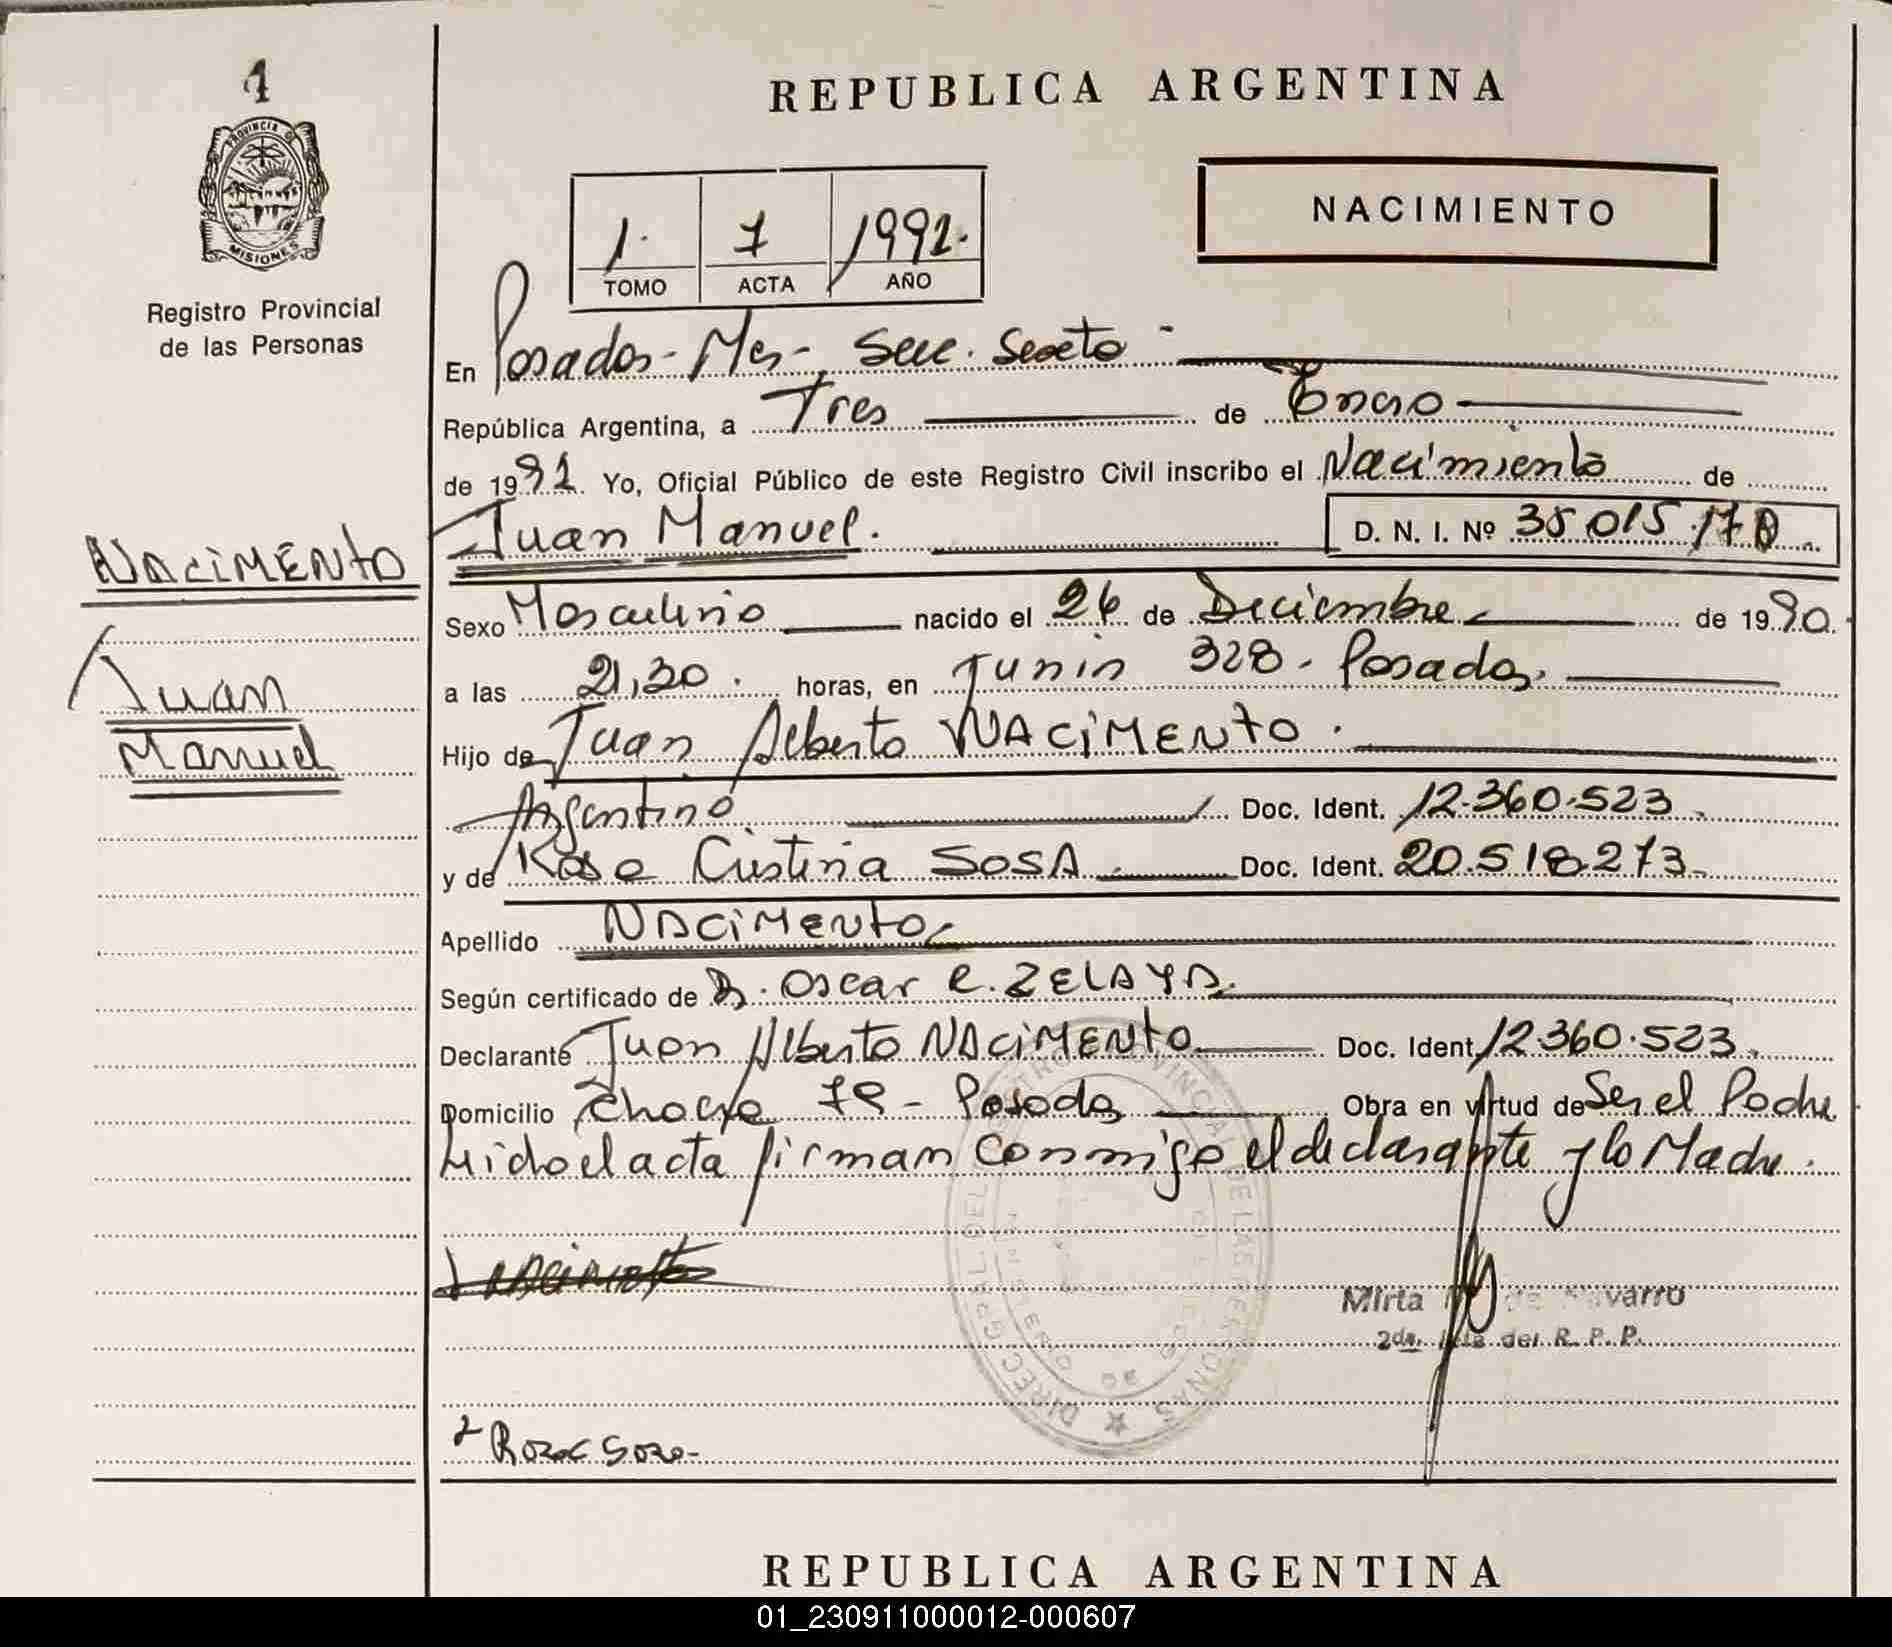 1
REPUBLICA ARGENTINA
PROVINCIA D
MISIONES
Registro Provincial
de las Personas
1. 7 1991.
TOMO ACTA AÑO
NACIMIENTO
En Posadas - Mes - Secc. Sexta -
República Argentina, a Tres de Enero
de 1991. Yo, Oficial Público de este Registro Civil inscribo el Nacimiento de
Juan Manuel. D. N. I. Nº 35.015.170
NACIMENTO
Juan
Manuel
Sexo Masculino nacido el 26 de Diciembre de 1990.
a las 21,30. horas, en Junin 328 - Posadas.
Hijo de Juan Alberto NACIMENTO.
Argentino Doc. Ident. 12.360.523.
y de Rosa Cristina SOSA Doc. Ident. 20.518.273.
Apellido NACIMENTO
Según certificado de Dr. Oscar R. ZELAYA.
Declarante Juan Alberto NACIMENTO Doc. Ident 12.360.523.
Domicilio Chacra 78 - Posadas Obra en virtud de Ser el Padre
Leido el acta firman conmigo el declarante y la Madre.
Mirta de Navarro
2da. del R. P. P.
Rosa Sosa
REPUBLICA ARGENTINA
01_230911000012-000607